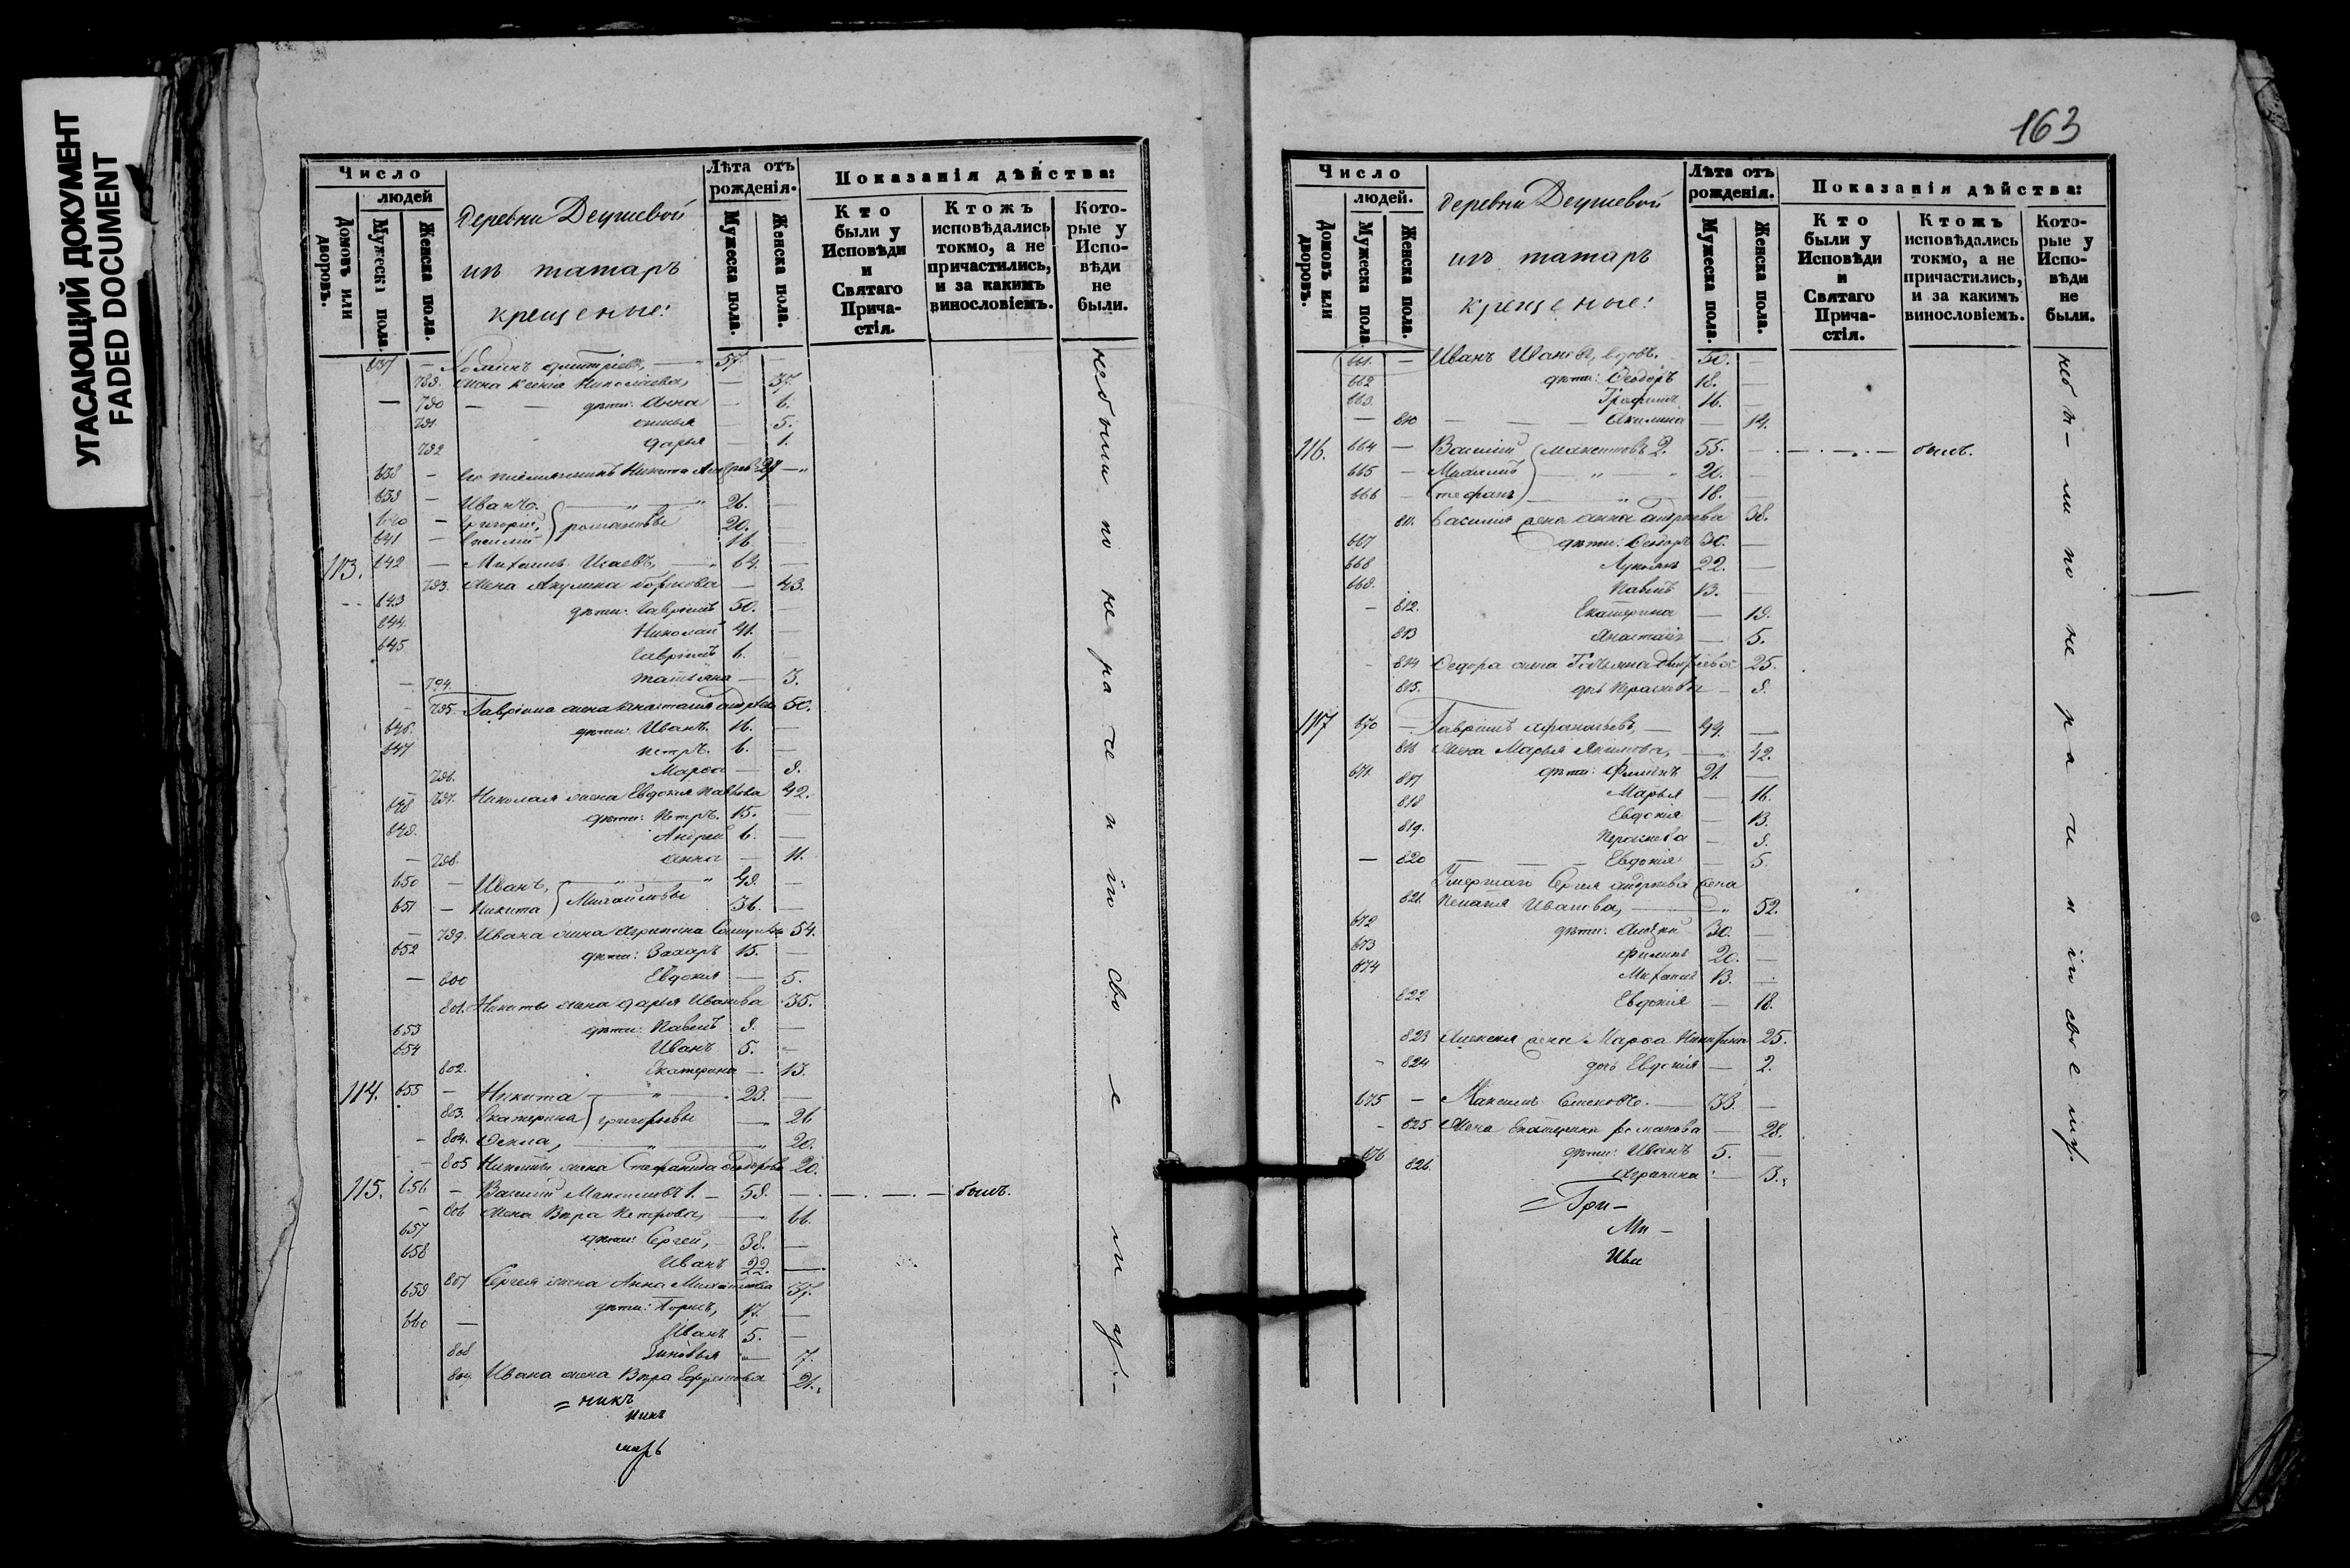 УГАСАЮЩИЙ ДОКУМЕНТ
FADED DOCUMENT
Число
людей
Домовъ или дворовъ.
Мужеска пола.
Женска пола.
Деревни Деушевой
изъ татаръ
крещеные:
Лѣта отъ рожденія.
Мужеска пола.
Женска пола.
Показанія дѣйства:
Кто были у Исповѣди и Святаго Причастія.
Ктожъ исповѣдались токмо, а не причастились, и за какимъ винословіемъ.
Которые у Исповѣди не были.
637 — 57. —
789. жена Ксенія Николаева, — 37.
790 — — дѣти: Анна — 6.
791. — 5.
792 Дарья — 1.
638 — Его племянникъ Никита 27 —
639 — Иванъ 26. —
640 — Григорій, романовы 20. —
641 — Василій 16 —
113. 642 — Михаилъ Исаевъ, 64. —
793. жена Акулина — 43.
643 дѣти: Гавріилъ 50. —
644. Николай 41. —
645 Гавріилъ 6. —
— 794. татьяна — 3.
795. Гавріила жена Анастасія 50.
646. дѣти: Иванъ. 16. —
647 петръ. 6. —
796. Марѳа — 9.
797. Николая жена Евдокия Павлова 42.
648 дѣти: Петръ. 15. —
649. Андрей 6. —
— 798. Анна — 11.
650 — Иванъ, 49. —
651 — Никита Михайловы 36. —
— 799. Ивана жена Агрипина 54.
652 дѣти: Захаръ 15. —
— 800 Евдокия — 5.
801. Никиты жена Дарья Иванова 35.
653 дѣти: Павелъ 9. —
654 Иванъ 5. —
802. Екатерина — 13.
114. 655 — Никита 23. —
803. Екатерина Григорьевы 26
— 804. Ѳекла, 20.
— 805 Никиты жена Стефанида 20.
115. 656 — Василій Максимовъ 1. — 59. — былъ.
— 806 жена Вѣра Петрова, — 66.
657 дѣти: Сергей, 38. —
658 Иванъ 22. —
807 Сергея жена Анна Михайлова 37.
659 дѣти: Борисъ, 17. —
660 — Иванъ 5. —
808 Зиновья — 7.
809. Ивана жена Вѣра 21.
= никъ
никъ
не были по нераченію своему
163
Число
людей.
Домовъ или дворовъ.
Мужеска пола.
Женска пола.
Деревни Деушевой
изъ татаръ
крещеные:
Лѣта отъ рожденія.
Мужеска пола.
Женска пола.
Показанія дѣйства:
Кто были у Исповѣди и Святаго Причастія.
Ктожъ исповѣдались токмо, а не причастились, и за какимъ винословіемъ.
Которые у Исповѣди не были.
661. — Иванъ Ивановъ, вдовъ. 50. —
662 дѣти: Ѳеодоръ 18. —
663. Трофимъ 16. —
— 810 — Акилина — 14.
116. 664 — Василій Максимовъ 2. 55. — былъ.
665 — Михаилъ 20. —
666 — Стефанъ 18. —
811. Василия жена Анна 38.
667 дѣти: Ѳедоръ 30. —
668 22. —
669. Павелъ 13. —
— 812. Екатерина — 19.
813 Анастасія — 5.
— 814 Ѳедора жена Татьяна 25.
815. дочь Парасковья — 9.
117 670 — Гавріилъ Афанасьевъ, — 49. —
816 жена Марья Якимова, — 42.
671. дѣти: Филипъ 21. —
817 Марья — 16.
818 Евдокія — 13.
819. Парасковья — 9.
— 820 Евдокія — 5.
Умершаго Сергея Андреева жена
821. Пелагея Иванова, 52.
672 дѣти: Алексей 30. —
673 Филипъ 20. —
674 Михаилъ 13. —
822 Евдокія — 18.
823 Алексея жена Марѳа 25.
— 824 дочь Евдокія — 2.
675 — Максимъ 33. —
— 825 жена Екатерина романова — 28.
676 дѣти: Иванъ 5. —
826. Агрипина — 3.
= Гри—
Ми—
Ива
не были по нераченію своему